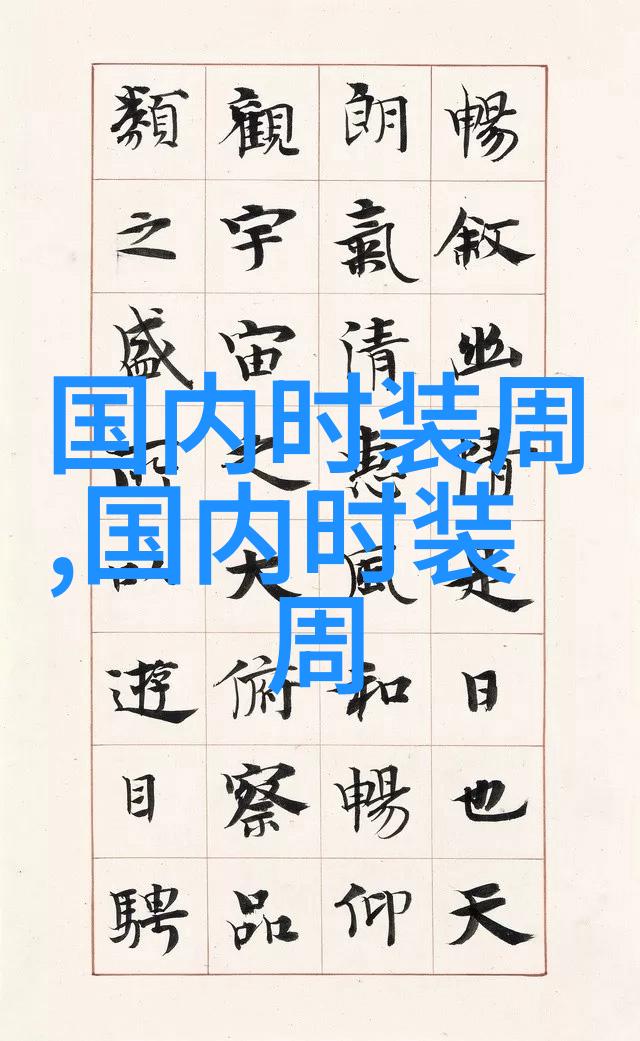 暢敘幽情是日也天
朗氣清惠風和暢仰
觀宇宙之大俯察品
類之盛所以遊目騁
国内时装周
,国内时装
周